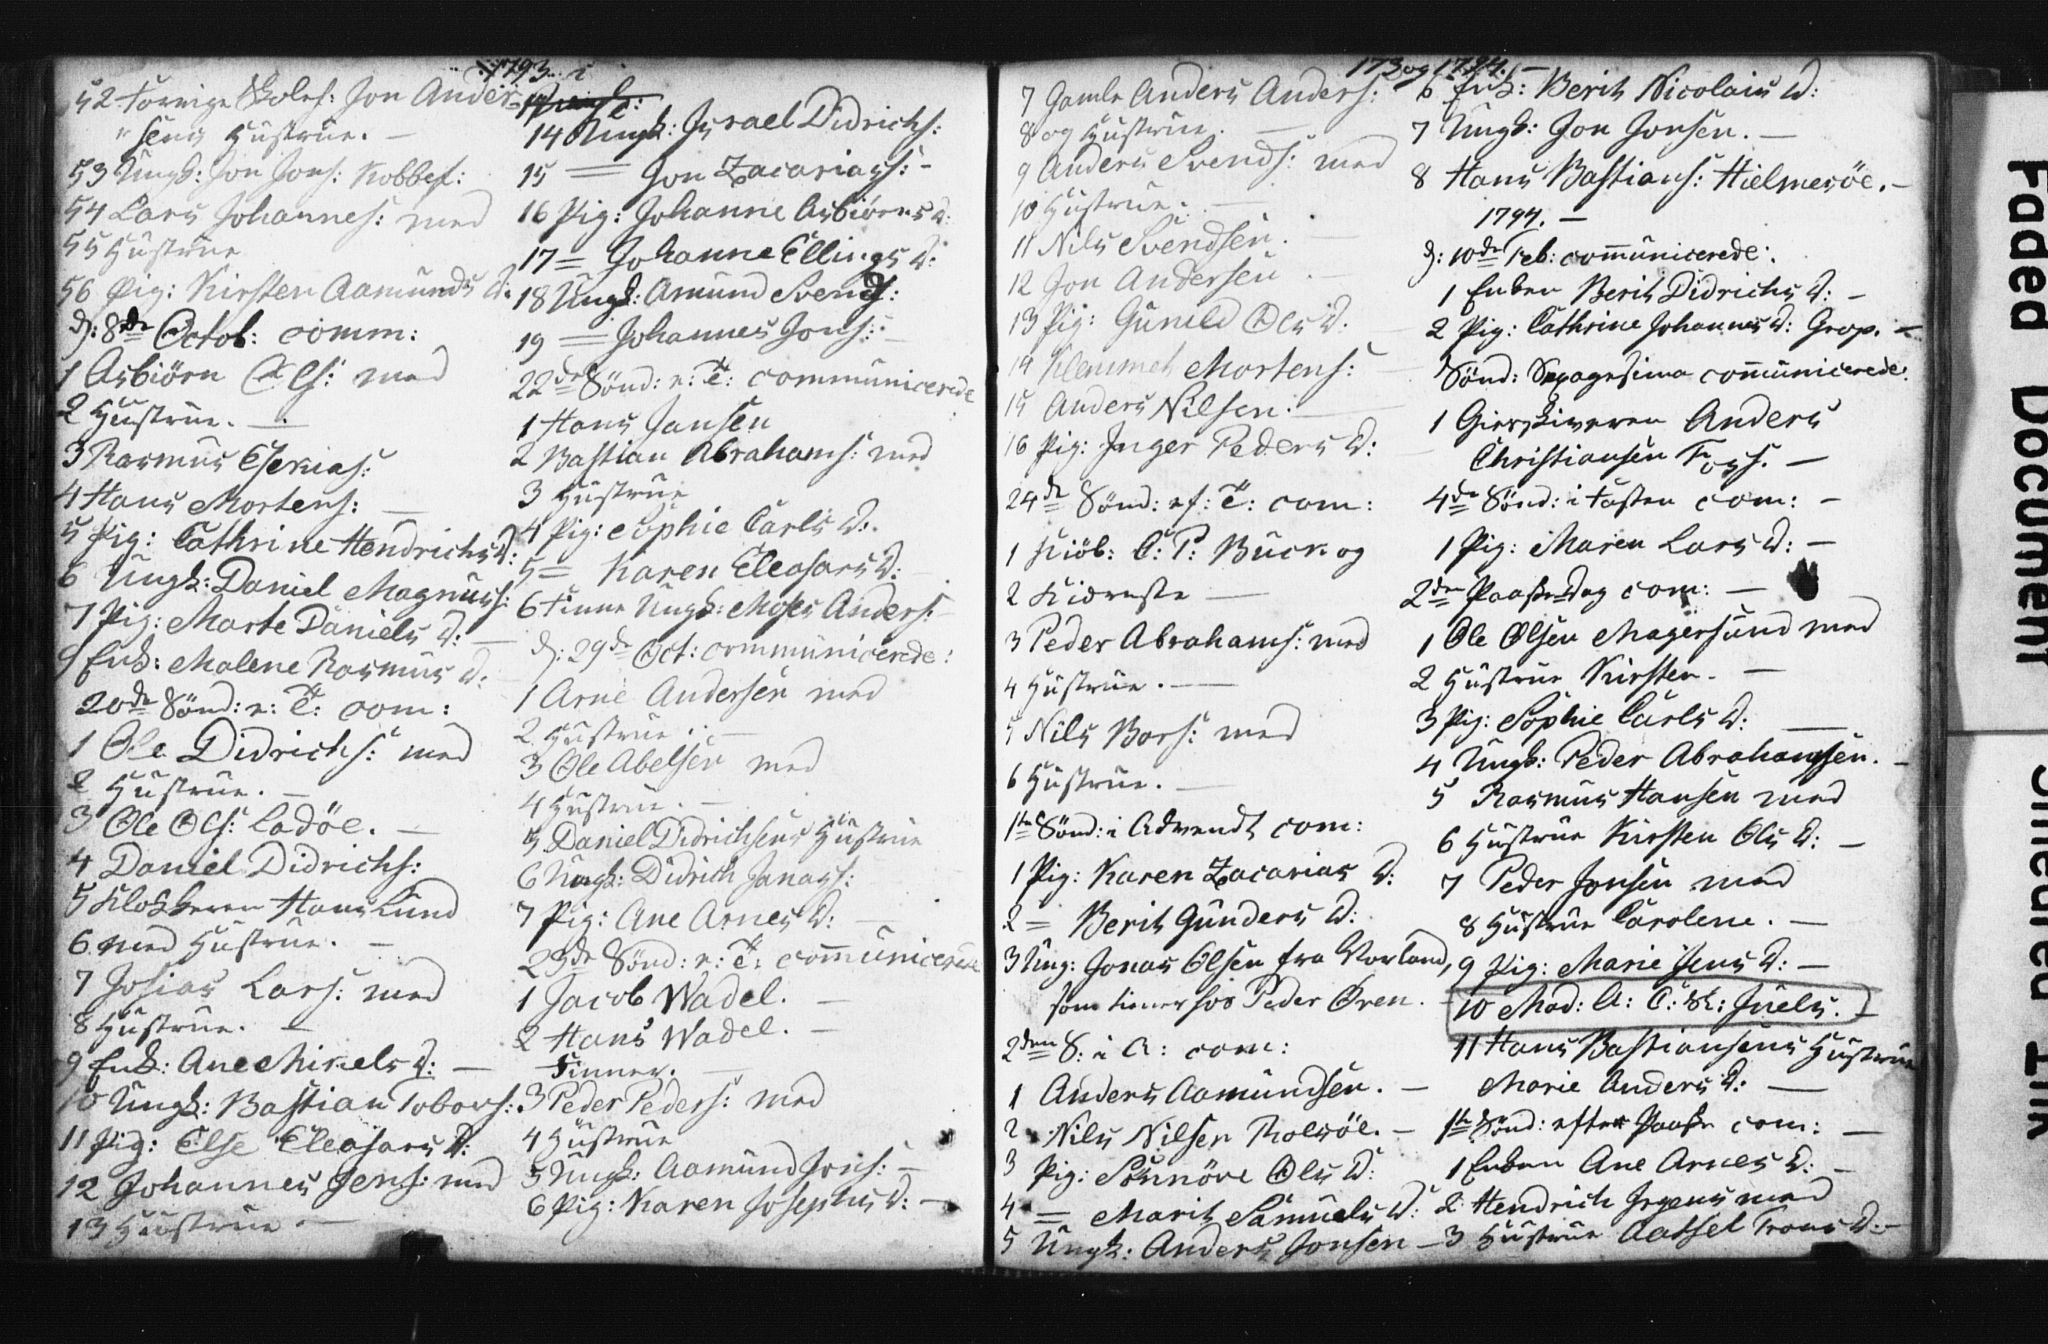 1793.
52 forrige Skolef: Jon Ander-
" sens Hustrue. —
53 Ungk: Jon Jons: Kobbef:
54 Lars Johannes: med
55 Hustrue
56 Pig: Kirsten Aamunds D:
D: 8de Octob: comm:
1 Asbiörn Ols: med
2 Hustrue. —
3 Rasmus Esekias:
4 Hans Mortens: —
5 Pig: Cathrine Hendrichs D:
6 Ungk: Daniel Magnus:
7 Pig: Marte Daniels D: —
9 Enk: Malene Rasmus D:
20de Sönd: e: T: com:
1 Ole Didrichs: med
2 Hustrue. —
3 Ole Ols: Ladöe. —
4 Daniel Didrichs:
5 Klokkeren Hans Lund
6 med Hustrue. —
7 Josias Lars: med
8 Hustrue. —
9 Enk: Ane Mikels D: —
10 Ungk: Bastian Tobars:
11 Pig: Else Eleasars D:
12 Johannes Jens: med
13 Hustrue. —
14 Ungk: Israel Didrichs:
15 = Jon Zacariass: -
16 Pig: Johanne Asbiörns D:
17 = Johanne Ellings D:
18 Ungk: Amund Svends:
19 = Johannes Jons: -
22de Sönd: e: T: communicerede
1 Hans Jansen
2 Bastian Abrahams: med
3 Hustrue
4 Pig: Sophie Carls D:.
5 = Karen Eleasars D:
6 Finne Ungk: Moses Anders:
D: 29de Oct: communicerede:
1 Arne Andersen med
2 Hustrue. —
3 Ole Abelsen med
4 Hustrue. —
5 Daniel Didrichsens Hustrue
6 Ungk: Didrich Janass:
7 Pig: Ane Arnes D: —
23de Sönd: e: T: communicerede
1 Jacob Wadel. —
2 Hans Wadel. —
Finner. —
3 Peder Peders: med
4 Hustrue
5 Ungk: Aamund Jons: —
6 Pig: Karen Josephus D: —
1793 og 1794. —
7 Gamle Anders Anders:
8 og Hustrue. —
9 Anders Svends: med
10 Hustrue. —
11 Nils Svendsen. —
12 Jon Andersen —
13 Pig: Gunild Ols D:
14 Klemmet Mortens: —
15 Anders Nilsen. —
16 Pig: Inger Peders D:
24de Sönd: ef: T: com:
1 Kiöb: C: P: Buck og
2 Kiæreste —
3 Peder Abrahams: med
4 Hustrue. —
5 Nils Bors: med
6 Hustrue. —
1te Sönd: i Advendt com:
1 Pig: Karen Zacarias D:
2 = Berit Gunders D:
3 Ung: Jonas Olsen fra Vorland,
som tiener hos Peder Ören.
2den S: i A: com:
1 Anders Aamundsen. —
2 Nils Nilsen Rolsöe. —
3 Pig: Sönnöve Ols D:
4 = Marit Samuels D:
5 Ungk: Anders Jonsen —
6 Enk: Berit Nicolais D:
7 Ungk: Jon Jonsen. —
8 Hans Bastians: Hielmesöe. —
1794. —
D: 10de Feb: communicerede:
1 Enken Berit Didrichs D: —
2 Pig: Cathrine Johannes D: Grop. —
Sönd: Sexagesima communicerede:
1 Gieskiveren Anders
Christiansen Foss. —
4de Sönd: i Fasten com: —
1 Pig: Maren Lars D: —
2den PaaskeDag com: —
1 Ole Olsen Magersund med
2 Hustrue Kirsten. —
3 Pig: Sophie Carls D: —
4 Ungk: Peder Abrahamsen. —
5 Rasmus Hansen med
6 Hustrue Kirsten Ols D: —
7 Peder Jonsen med
8 Hustrue Carolene. —
9 Pig: Marie Jens D: —
10 Mad: A: C: Sk: Juels. —
11 Hans Bastiansens Hustrue
Marie Anders D: —
1te Sönd: efter Paaske com: —
1 Enken Ane Arnes D: —
2 Hendrich Irgens med
3 Hustrue Aatzel Trons D: —
Faded Document
Smeared Ink